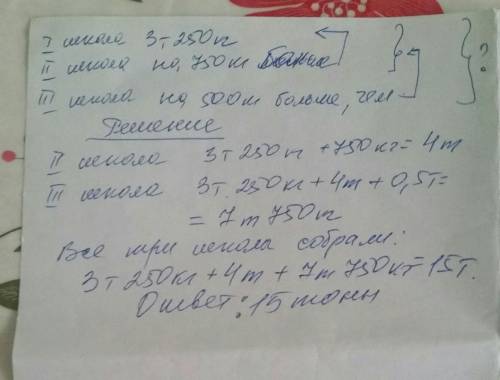 I школа 3т 250кг
II школа на 750кг больше
III школа на 500кг больше, чем
?
Решение
II школа 3т 250кг + 750кг = 4т
III школа 3т 250кг + 4т + 0,5т =
= 7т 750кг
Все три школы собрали:
3т 250кг + 4т + 7т 750кг = 15т.
Ответ: 15 тонн